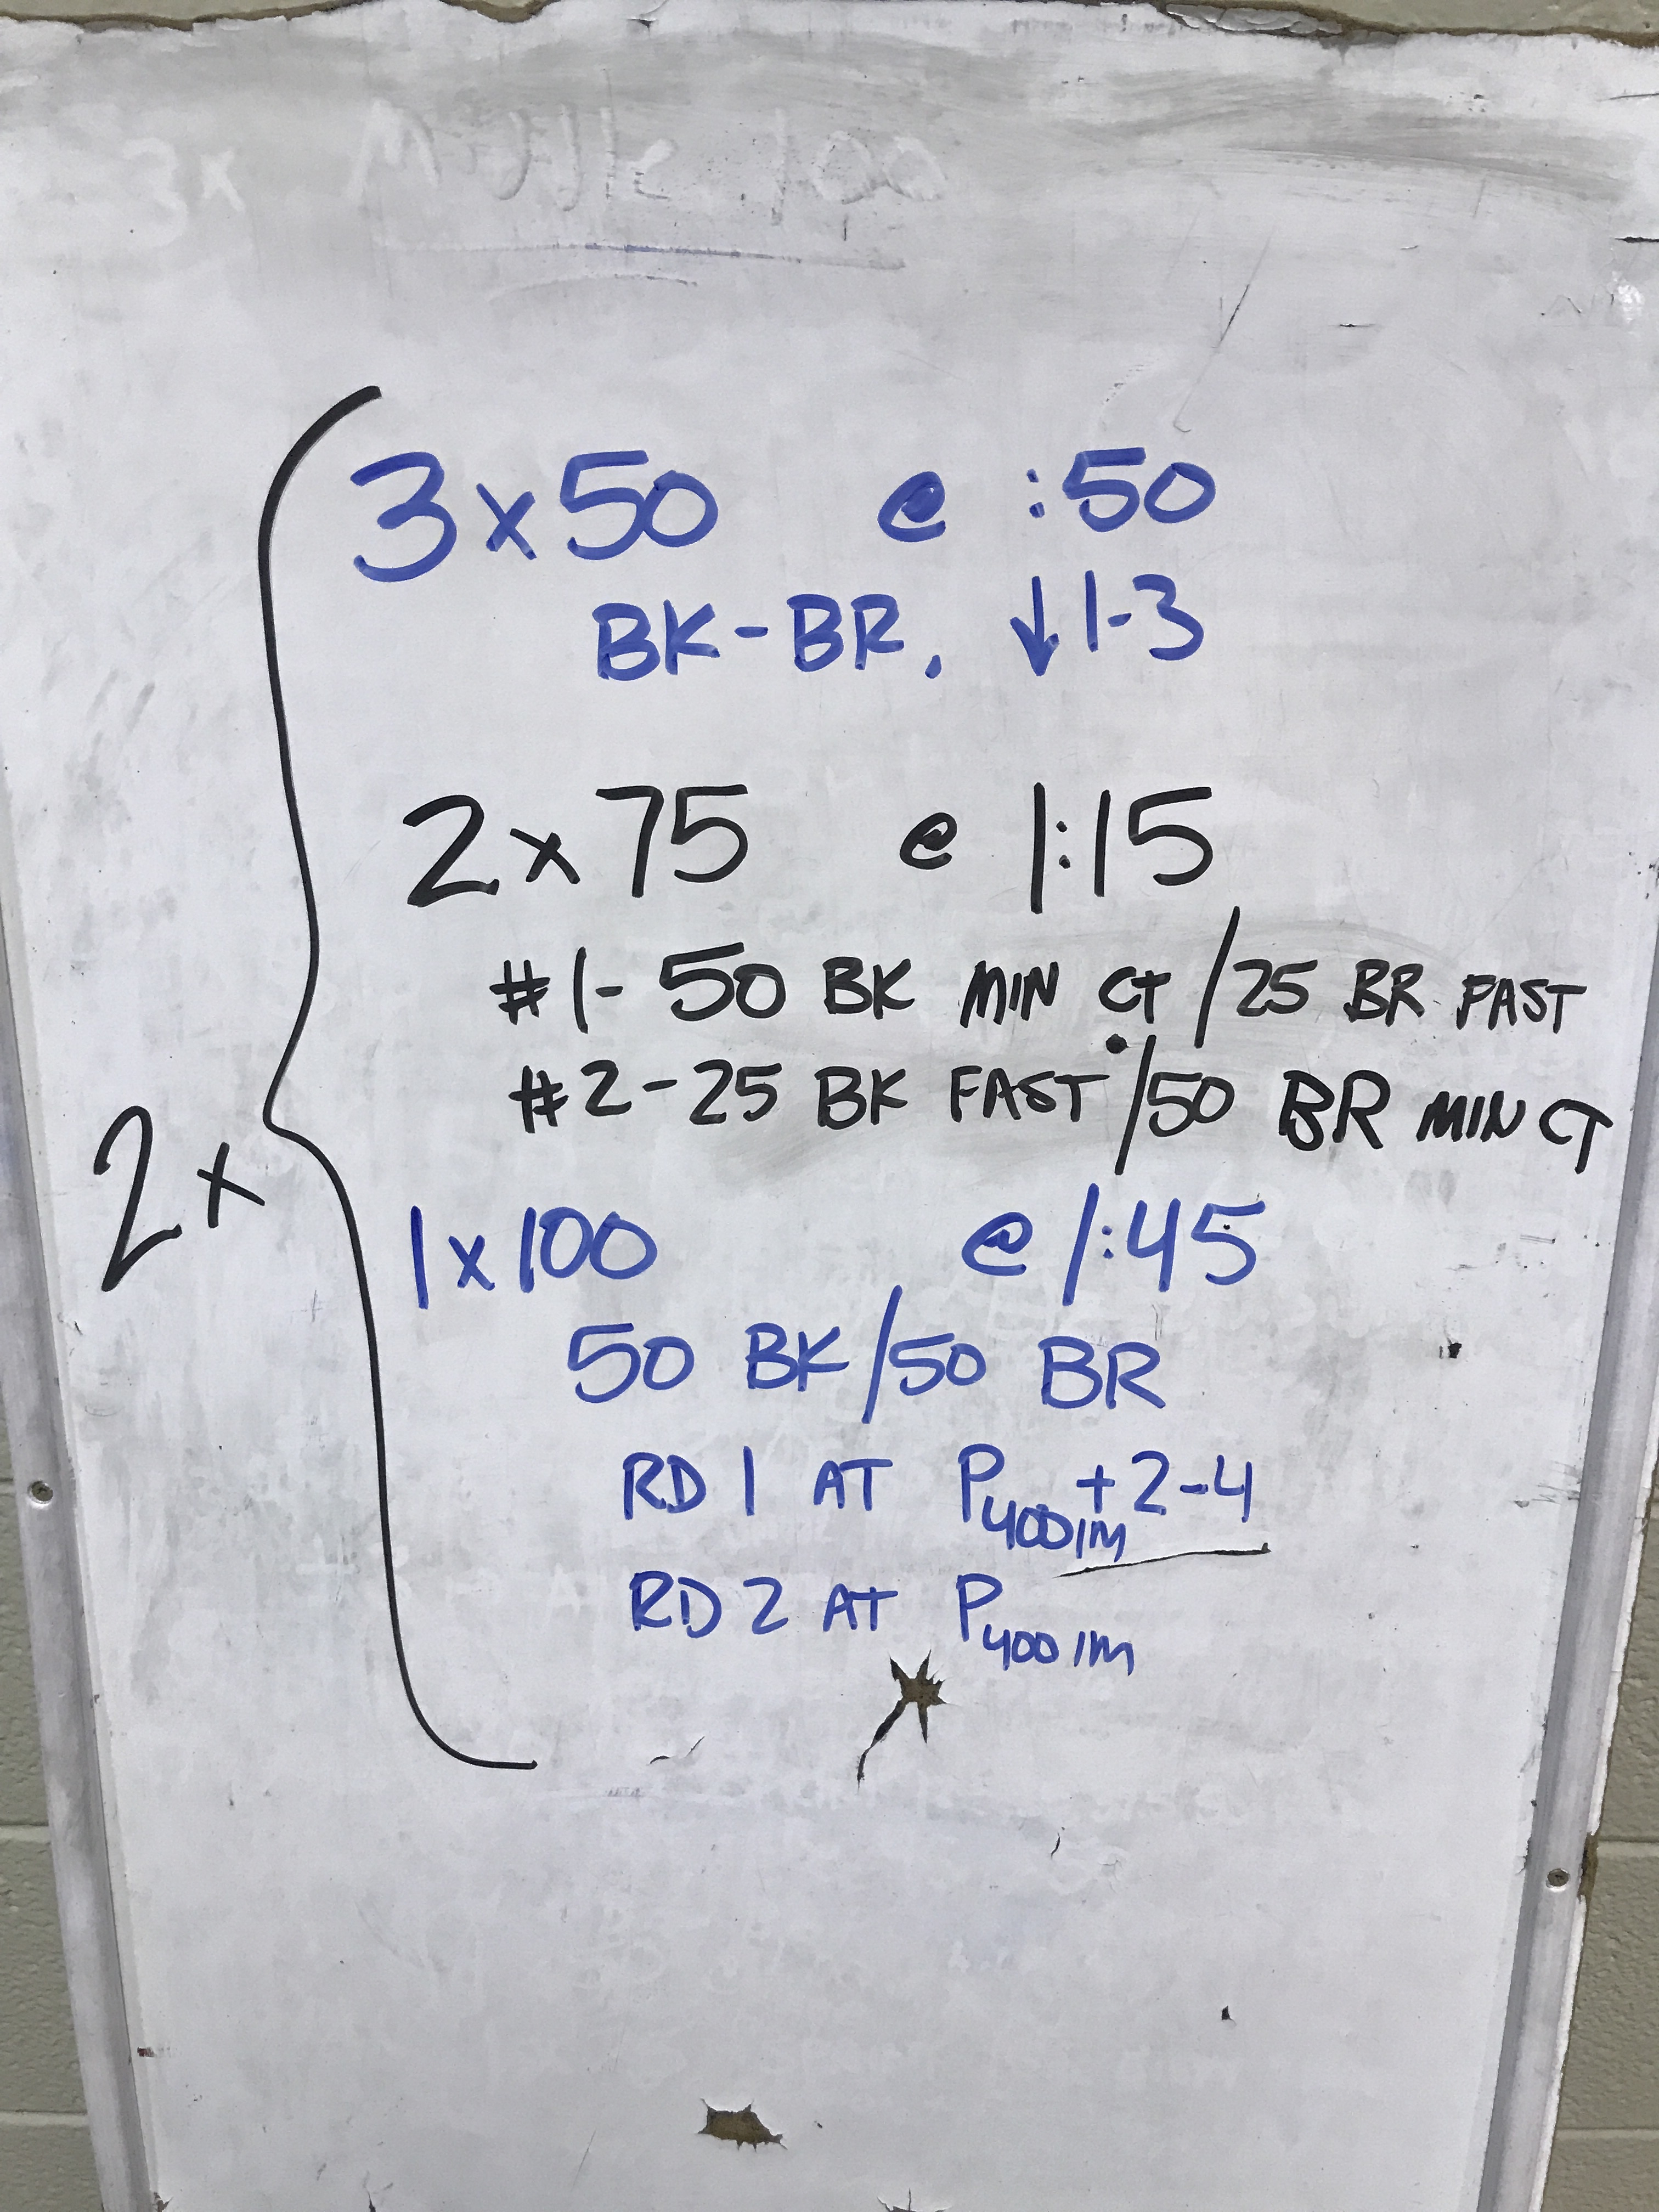 3x
3x50 @ :50
BK-BR, ↓1-3
2x75 @ 1:15
#1- 50 BK MIN CT /25 BR FAST
#2-25 BK FAST/50 BR MIN CT
2x
1x100 @ 1:45
50 BK/50 BR
RD 1 AT P400IM+2-4
RD 2 AT P400IM